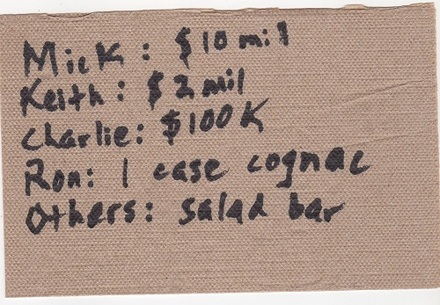 Mick: $10 mil
Keith: $2 mil
Charlie: $100K
Ron: 1 case cognac
Others: salad bar